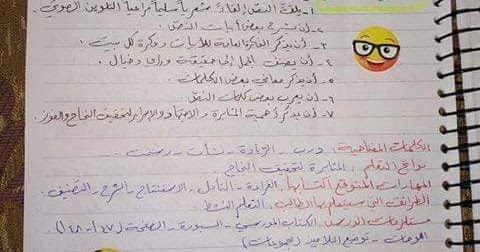 ١- يلقي النص إلقاءً شعرياً سليماً مراعياً التلوين الصوتي.
٢- أن يشرح بعض أبيات النص.
٣- أن يذكر الفكرة العامة للأبيات وفكرة كل بيت.
٤- أن يصنف الجمل إلى حقيقة ورأي وخيال.
٥- أن يذكر معاني بعض الكلمات.
٦- أن يعرب بعض كلمات النص.
٧- أن يذكر أهمية المثابرة والاجتهاد والإصرار لتحقيق النجاح والفوز.
الكلمات المفتاحية: درب - الريادة - نشأت - رسمت
نواتج التعلم: المثابرة لتحقيق النجاح
المهارات المتوقع اكتسابها: القراءة - التأمل - الاستنتاج - الشرح - التصنيف
الطرائق التي سيتعلم بها الطالب: التعلم النشط
مستلزمات الدرس: الكتاب المدرسي - السبورة - الصفحة (١٤٧-١٤٨)
اللوحات - توزيع التلاميذ (مجموعات)